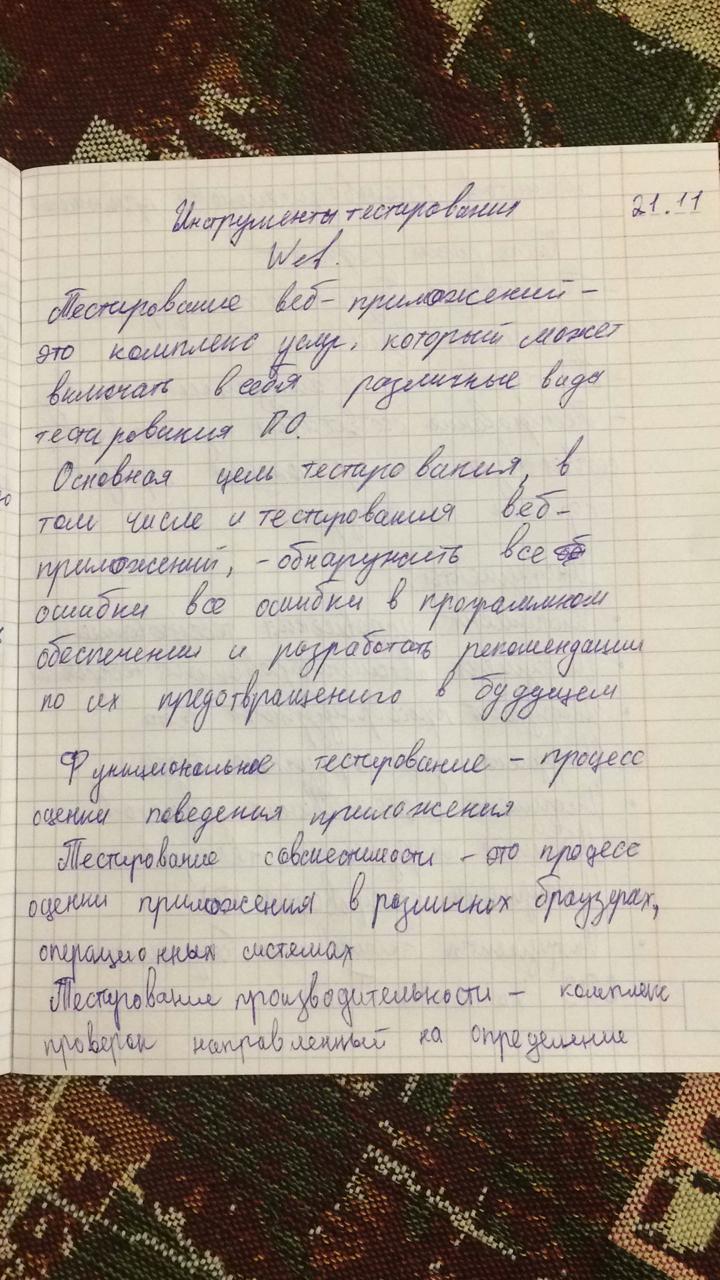 Инструменты тестирования 21.11
Web.
Тестирование веб-приложений -
это комплекс услуг, который может
включать в себя различные виды
тестирования ПО.
Основная цель тестирования, в
том числе и тестирования веб-
приложений, - обнаружить все
ошибки все ошибки в программном
обеспечении и разработать рекомендации
по их предотвращению в будущем
Функциональное тестирование - процесс
оценки поведения приложения
Тестирование совместимости - это процесс
оценки приложения в различных браузерах,
операционных системах
Тестирование производительности - комплекс
проверок направленный на определение